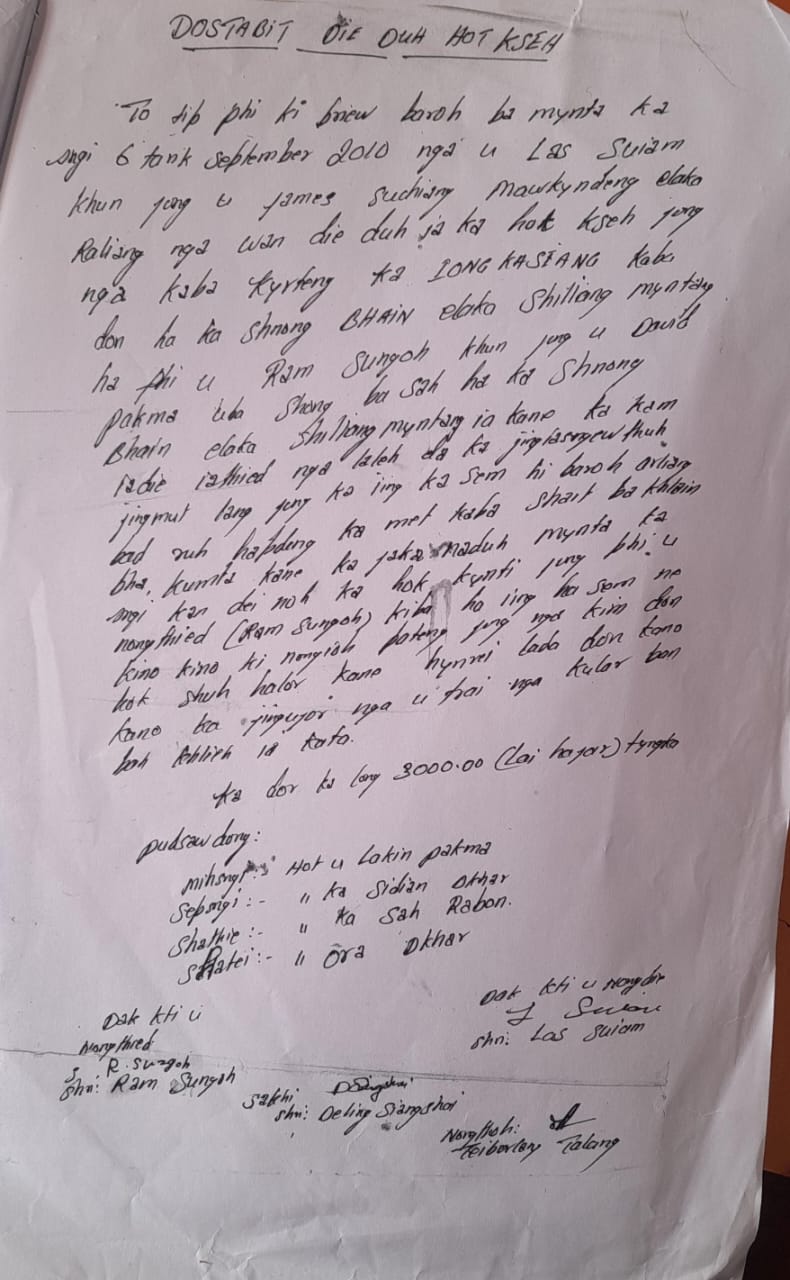 DOSTABIT DIE DUH HOT KSEH
To tip phi ki briew baroh ba mynta ka
sngi 6 tarik september 2010 nga u Las Suiam
khun jong u James Suchiang Mawkyndeng elaka
Raliang nga wan die duh ia ka hok kseh jong
nga kaba kyrteng ka IONG KASIANG kaba
don ha ka shnong BHAIN elaka Shiliang myntang
ha phi u Ram Sungoh khun jong u David
pakma uba shong ba sah ha ka Shnong
Bhain elaka Shiliang myntang ia kane ka kam
iadie iathied nga laleh da ka jingiasngewthuh
jingmut lang jong ka iing ka sem hi baroh arliang
bad ruh hapdeng ka met kaba shait ba khlain
bha, kumta kane ka jaka naduh mynta ka
sngi kan dei noh ka hok kynti jong phi u
nongthied (Ram Sungoh) kiba ha iing ha sem ne
kino kino ki nongioh pateng jong nga kim don
hok shuh halor kane hynrei lada don kano
kano ka jingujor nga u trai nga kular ban
ban khlieh ia kata.
Ka dor ka long 3000.00 (Lai hajar) tyngka
pudsawdong:
Mihsngi:- Hot u Lakin pakma
Sepsngi:- " ka Sidian Dkhar
Shathie:- " Ka Sah Rabon.
Shatei:- " Ora Dkhar
Dak kti u Nongdie
Shri: Las Suiam
Dak kti u
Nongthied
R. Sungoh
Shri: Ram Sungoh
Sakhi DSiangshai
Shri: Deling Siangshai
Nongthoh:
Teiborlang Talang